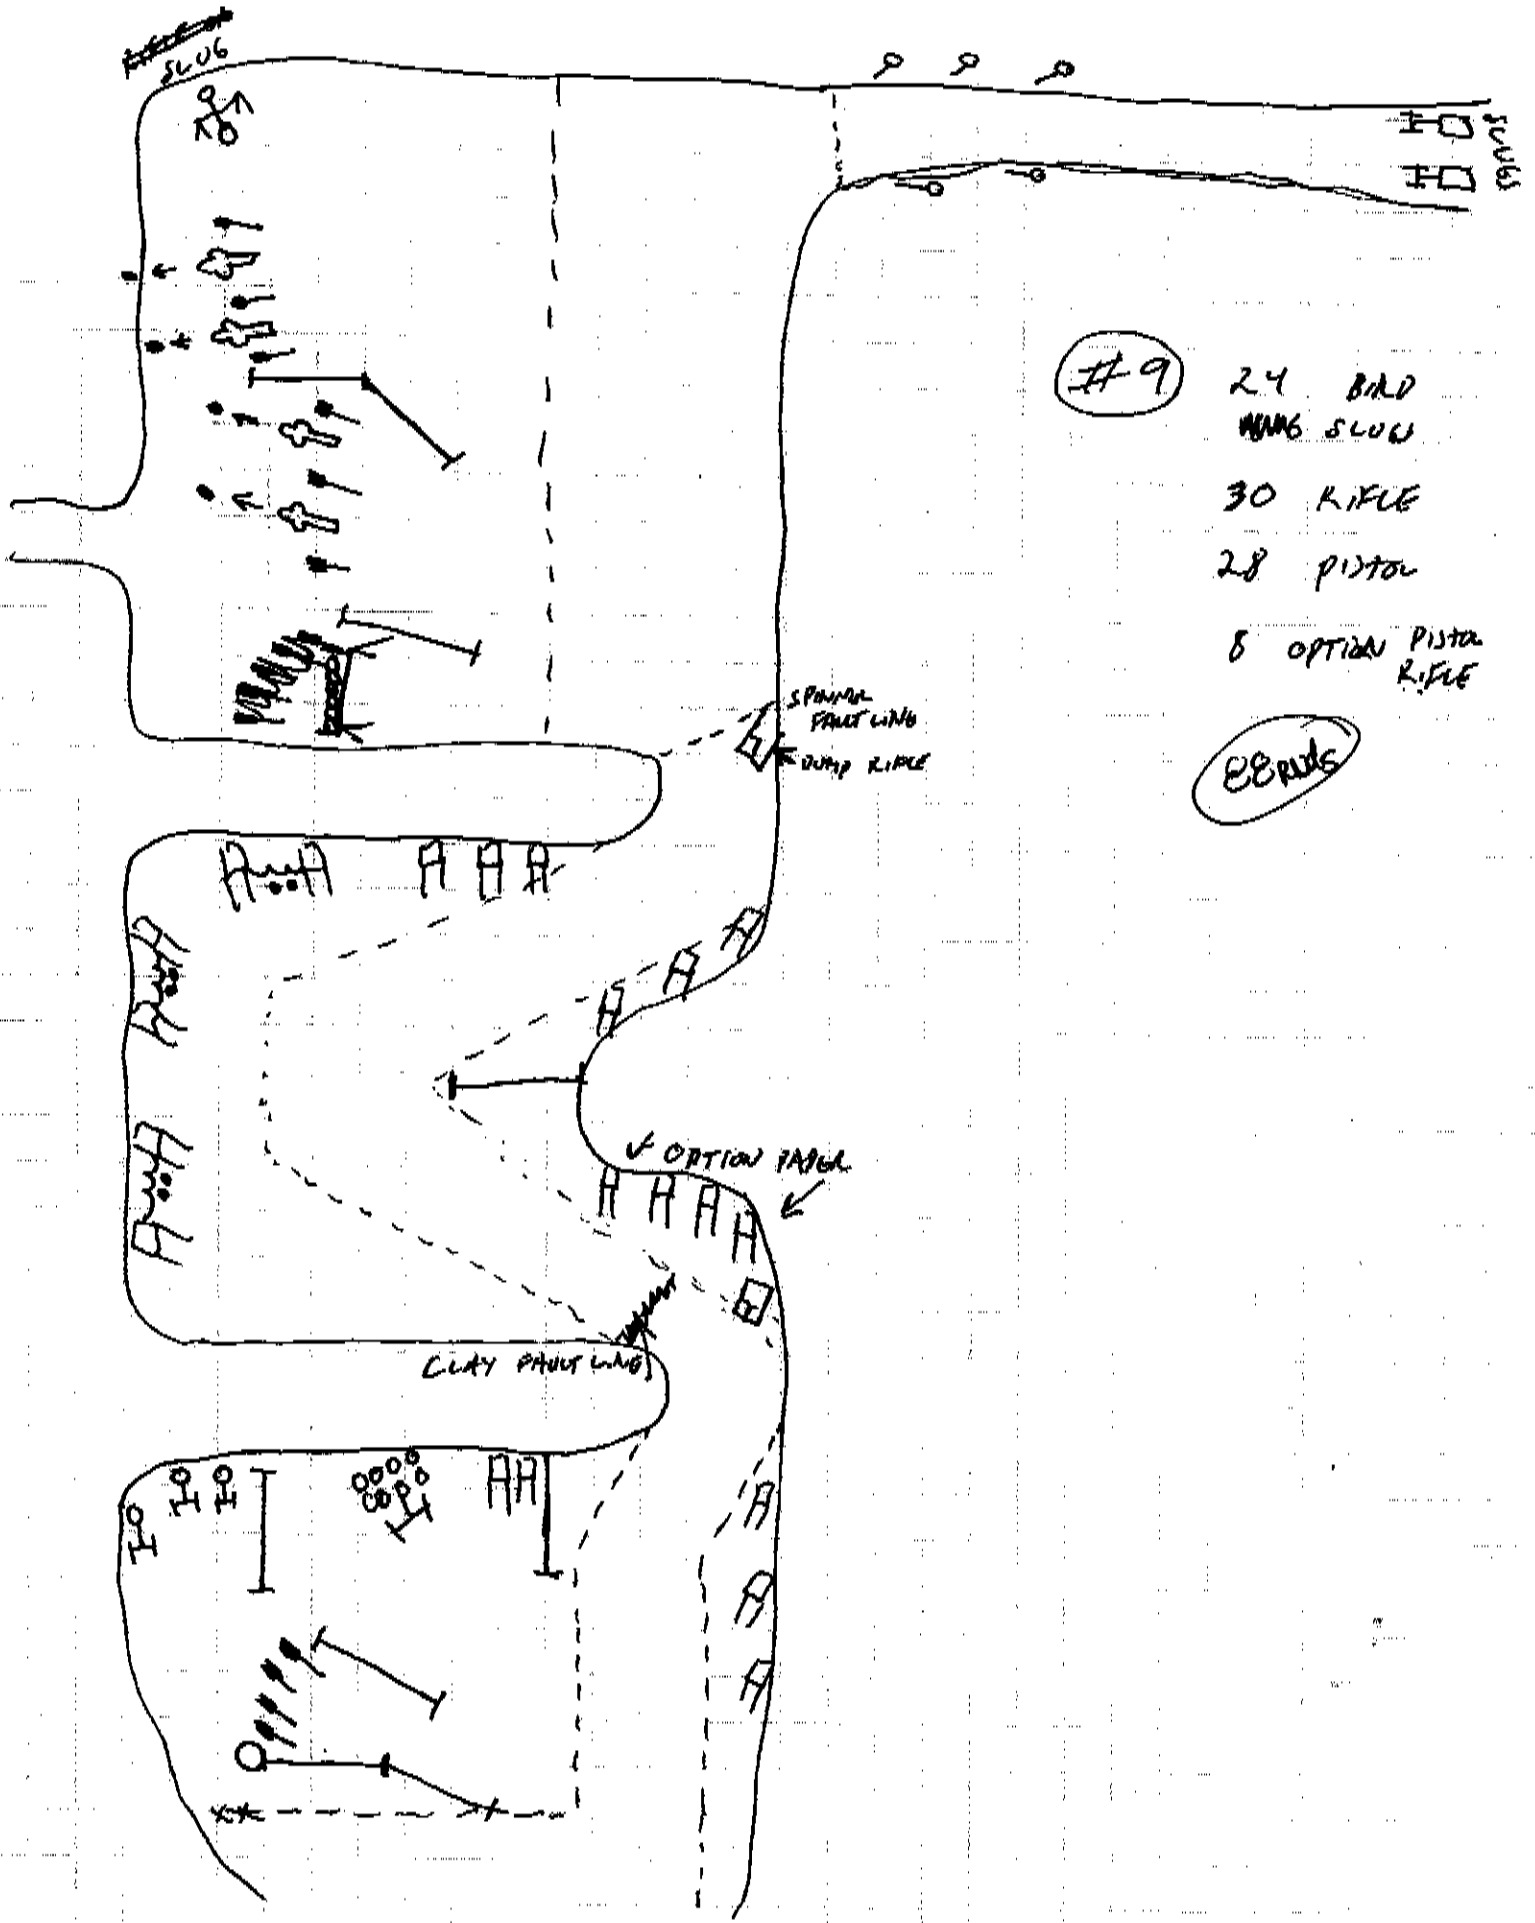 SLUG
SLUG
#9
24 BIRD
SLUG
30 RIFLE
28 PISTOL
8 OPTION PISTOL
RIFLE
SPINNER
FAULT LINE
DUMP RIFLE
88 RNDS
OPTION PAPER
CLAY FAULT LINE